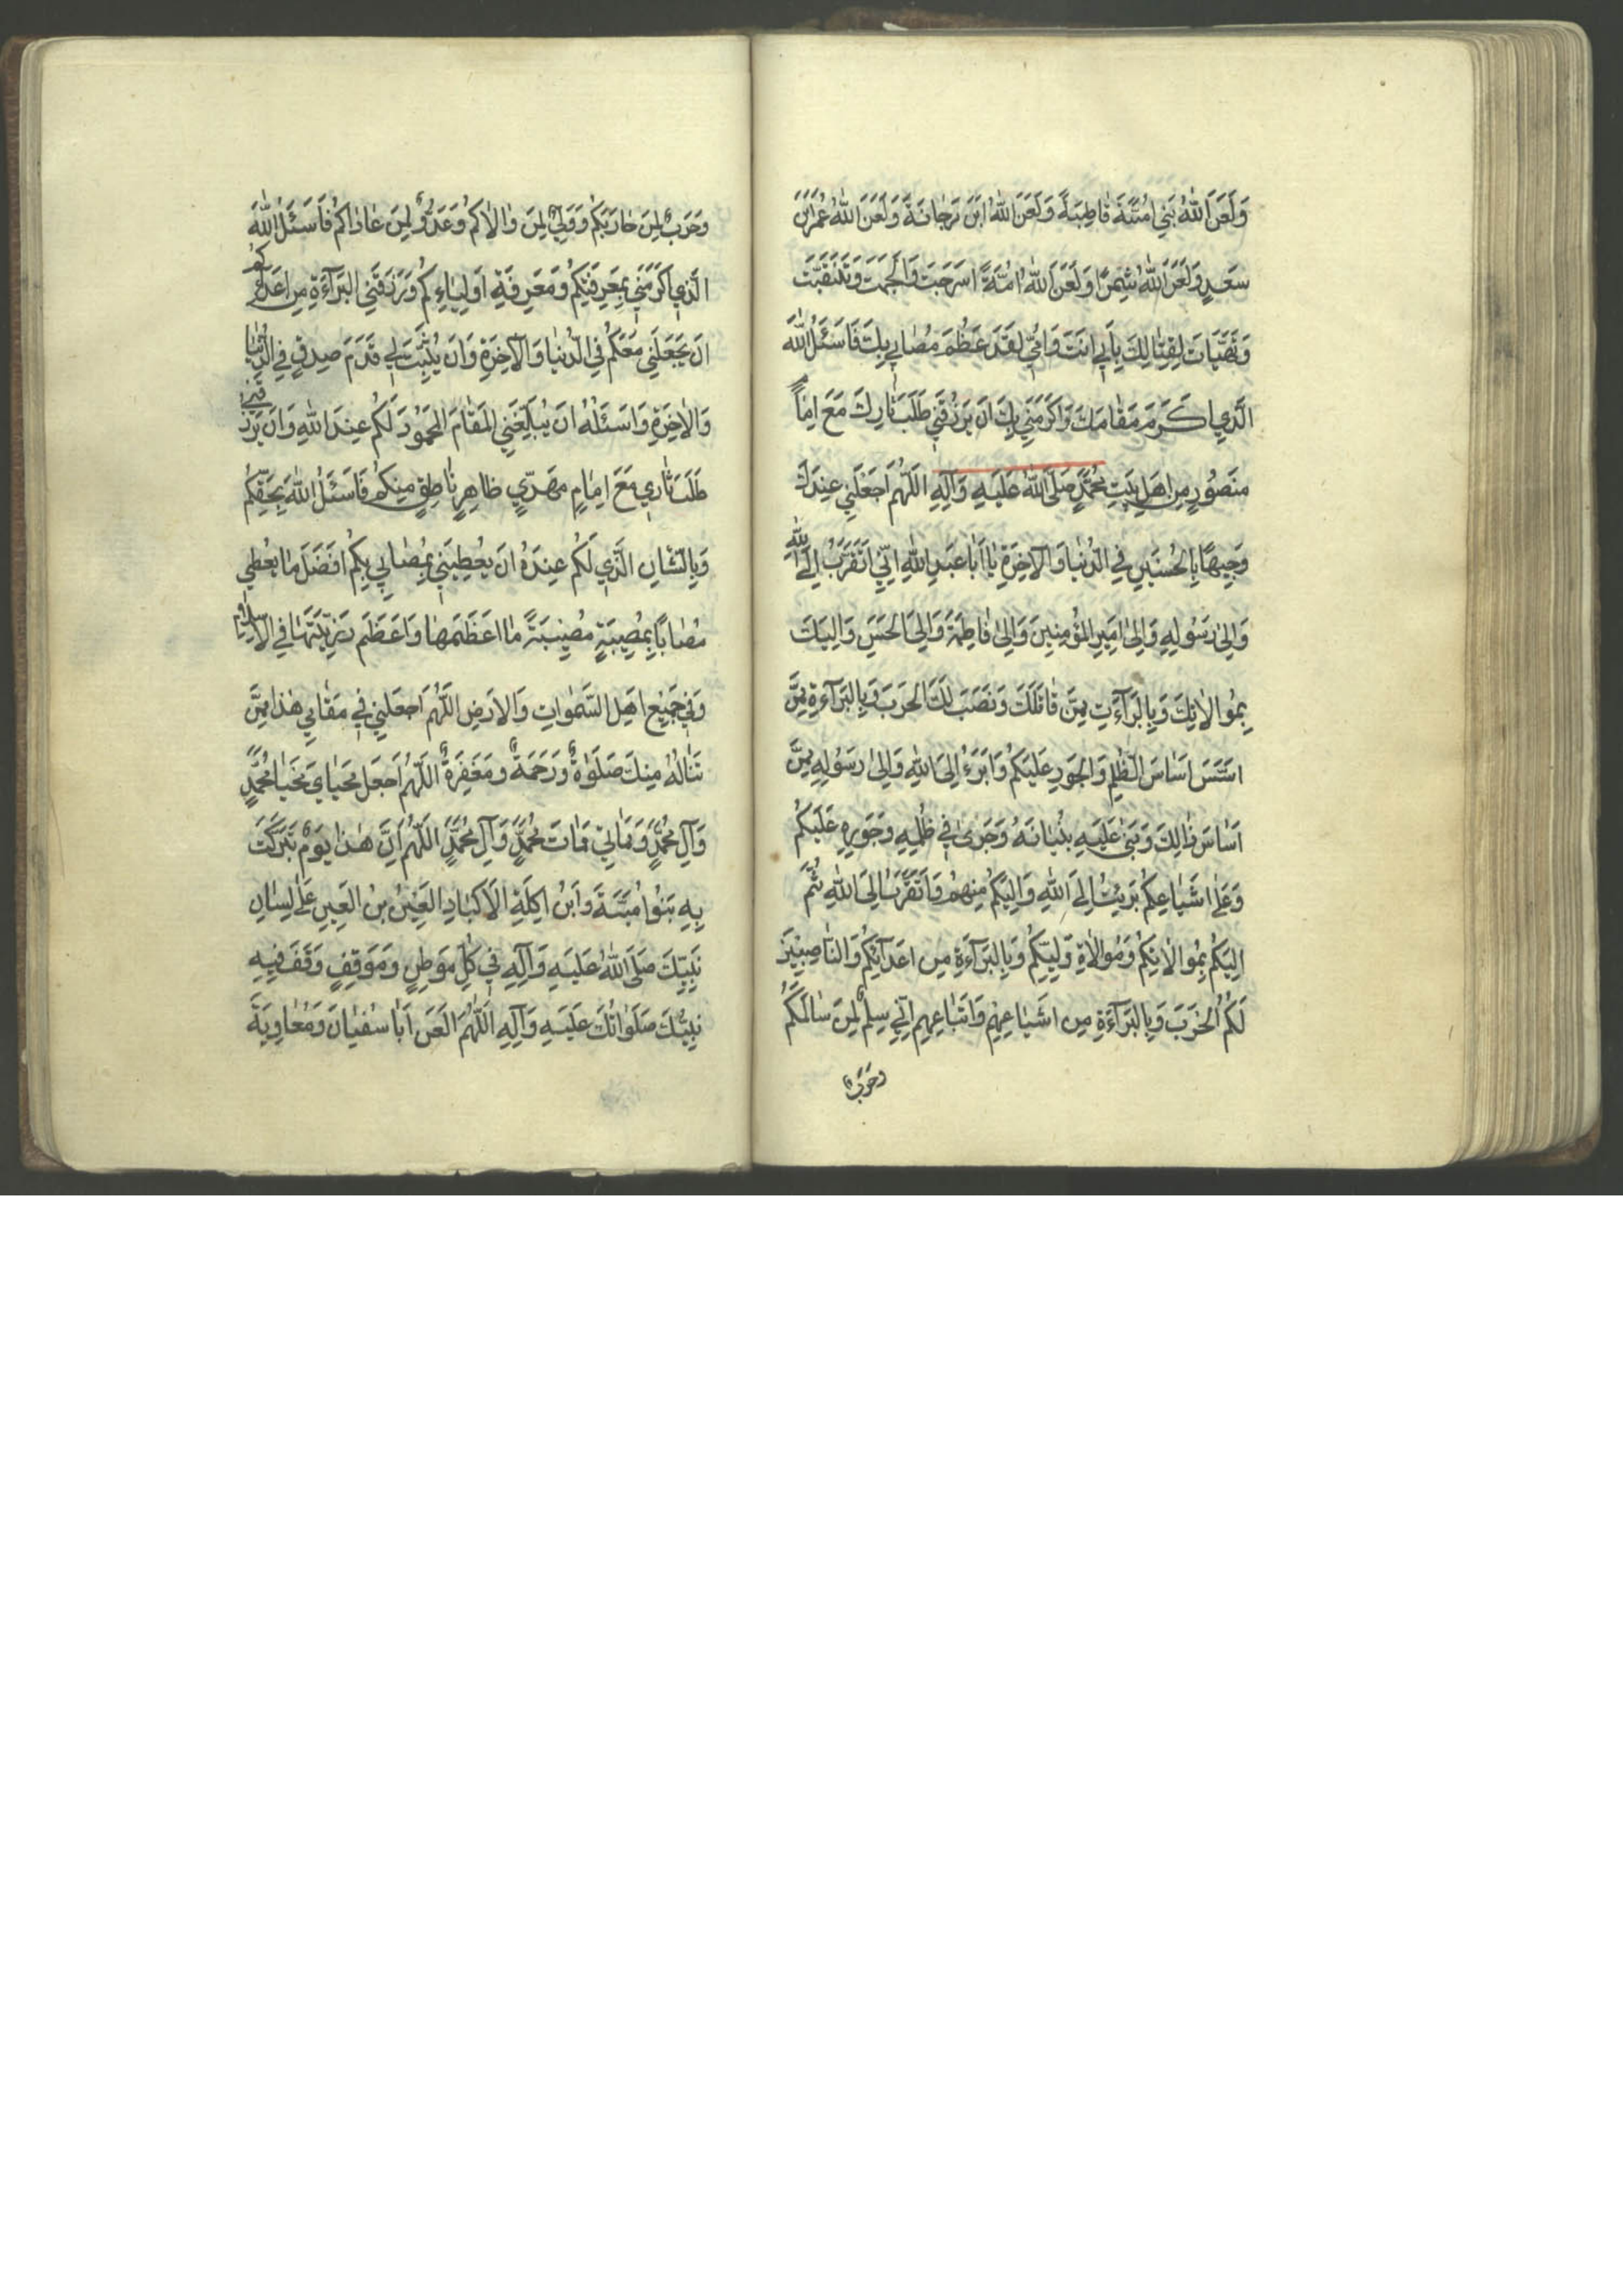 وَلَعَنَ اللهُ بَنِي اُمَيَّةَ قٰاطِبَةً وَلَعَنَ اللهُ ابْنَ مَرْجٰانَةَ وَلَعَنَ اللهُ عُمَرَبْنَ
سَعْدٍ وَلَعَنَ اللهُ شِمْرًا وَلَعَنَ اللهُ اُمَّةً اَسْرَجَتْ وَاَلْجَمَتْ وَتَنَقَّبَتْ
وَتَهَيَّاَتْ لِقِتٰالِكَ بِاَبِي اَنْتَ وَاُمِّي لَقَدْ عَظُمَ مُصٰابِي بِكَ فَاَسْئَلُ اللهَ
الَّذِي اَكْرَمَ مَقٰامَكَ وَاَكْرَمَنِي بِكَ اَنْ يَرْزُقَنِي طَلَبَ ثٰارِكَ مَعَ اِمٰامٍ
مَنْصُورٍ مِنْ اَهْلِ بَيْتِ مُحَمَّدٍ صَلَّى اللهُ عَلَيْهِ وَآلِهِ اَللّٰهُمَّ اجْعَلْنِي عِنْدَكَ
وَجِيهًا بِالْحُسَيْنِ فِي الدُّنْيٰا وَالْآخِرَةِ يٰا اَبٰا عَبْدِ اللهِ اِنِّي اَتَقَرَّبُ اِلَى اللهِ
وَاِلىٰ رَسُولِهِ وَاِلىٰ اَمِيرِ الْمُؤْمِنِينَ وَاِلىٰ فٰاطِمَةَ وَاِلَى الْحَسَنِ وَاِلَيْكَ
بِمُوٰالاٰتِكَ وَبِالْبَرٰآءَتِ مِمَّنْ قٰاتَلَكَ وَنَصَبَ لَكَ الْحَرْبَ وَبِالْبَرٰآءَةِ مِمَّنْ
اَسَّسَ اَسٰاسَ الظُّلْمِ وَالْجَوْرِ عَلَيْكُمْ وَاَبْرَءُ اِلَى اللهِ وَاِلىٰ رَسُولِهِ مِمَّنْ
اَسٰاسَ ذٰالِكَ وَبَنىٰ عَلَيْهِ بُنْيٰانَهُ وَجَرىٰ فِي ظُلْمِهِ وَجَوْرِهِ عَلَيْكُمْ
وَعَلىٰ اَشْيٰاعِكُمْ بَرِئْتُ اِلَى اللهِ وَاِلَيْكُمْ مِنْهُمْ وَاَتَقَرَّبُ اِلَى اللهِ ثُمَّ
اِلَيْكُمْ بِمُوٰالاٰتِكُمْ وَمُوٰالاٰةِ وَلِيِّكُمْ وَبِالْبَرٰآءَةِ مِنْ اَعْدٰآئِكُمْ وَالنّٰاصِبِينَ
لَكُمُ الْحَرْبَ وَبِالْبَرٰآءَةِ مِنْ اَشْيٰاعِهِمْ وَاَتْبٰاعِهِمْ اِنِّي سِلْمٌ لِمَنْ سٰالَمَكُمْ
وَحَرْبٌ
وَحَرْبٌ لِمَنْ حٰارَبَكُمْ وَوَلِيٌّ لِمَنْ وٰالاٰكُمْ وَعَدُوٌّ لِمَنْ عٰادٰاكُمْ فَاَسْئَلُ اللهَ
الَّذِي اَكْرَمَنِي بِمَعْرِفَتِكُمْ وَمَعْرِفَةِ اَوْلِيٰاءِكُمْ وَرَزَقَنِي الْبَرٰآءَةَ مِنْ اَعْدٰآئِكُمْ
اَنْ يَجْعَلَنِي مَعَكُمْ فِي الدُّنْيٰا وَالْآخِرَةِ وَاَنْ يُثَبِّتَ لِي قَدَمَ صِدْقٍ فِي الدُّنْيٰا
وَالْاٰخِرَةِ وَاَسْئَلُهُ اَنْ يُبَلِّغَنِي الْمَقٰامَ الْمَحْمُودَ لَكُمْ عِنْدَ اللهِ وَاَنْ يَرْزُقَنِي
طَلَبَ ثٰارِي مَعَ اِمٰامٍ مَهْدِيٍّ ظٰاهِرٍ نٰاطِقٍ مِنْكُمْ فَاَسْئَلُ اللهَ بِحَقِّكُمْ
وَبِالشَّانِ الَّذِي لَكُمْ عِنْدَهُ اَنْ يُعْطِيَنِي بِمُصٰابِي بِكُمْ اَفْضَلَ مٰا يُعْطِي
مُصٰابًا بِمُصِيبَةٍ مُصِيبَةً مٰا اَعْظَمَهٰا وَاَعْظَمَ رَزِيَّتَهٰا فِي الْاِسْلاٰمِ
وَفِي جَمِيعِ اَهْلِ السَّمٰوٰاتِ وَالْاَرْضِ اَللّٰهُمَّ اجْعَلْنِي فِي مَقٰامِي هٰذٰا مِمَّنْ
تَنٰالُهُ مِنْكَ صَلَوٰاةٌ وَرَحْمَةٌ وَمَغْفِرَةٌ اَللّٰهُمَّ اجْعَلْ مَحْيٰايَ مَحْيٰا مُحَمَّدٍ
وَآلِ مُحَمَّدٍ وَمَمٰاتِي مَمٰاتَ مُحَمَّدٍ وَآلِ مُحَمَّدٍ اَللّٰهُمَّ اِنَّ هٰذٰا يَوْمٌ تَبَرَّكَتْ
بِهِ بَنُو اُمَيَّةَ وَابْنُ اٰكِلَةِ الْاَكْبٰادِ اللَّعِينُ بْنُ اللَّعِينِ عَلىٰ لِسٰانِ
نَبِيِّكَ صَلَّى اللهُ عَلَيْهِ وَآلِهِ فِي كُلِّ مَوْطِنٍ وَمَوْقِفٍ وَقَفَ فِيهِ
نَبِيُّكَ صَلَوٰاتُكَ عَلَيْهِ وَآلِهِ اَللّٰهُمَّ الْعَنْ اَبٰا سُفْيٰانَ وَمُعٰاوِيَةَ